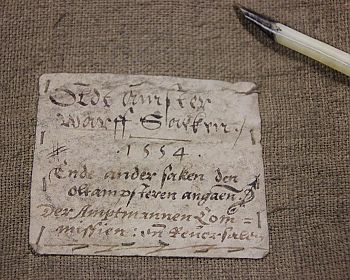 Olde Amster
warff Saeken./
· 1554 ·
Ende ander saken den
oltampsteren angaen:
Der Amptmannen Com=
missien: vn̄ Reuersalen